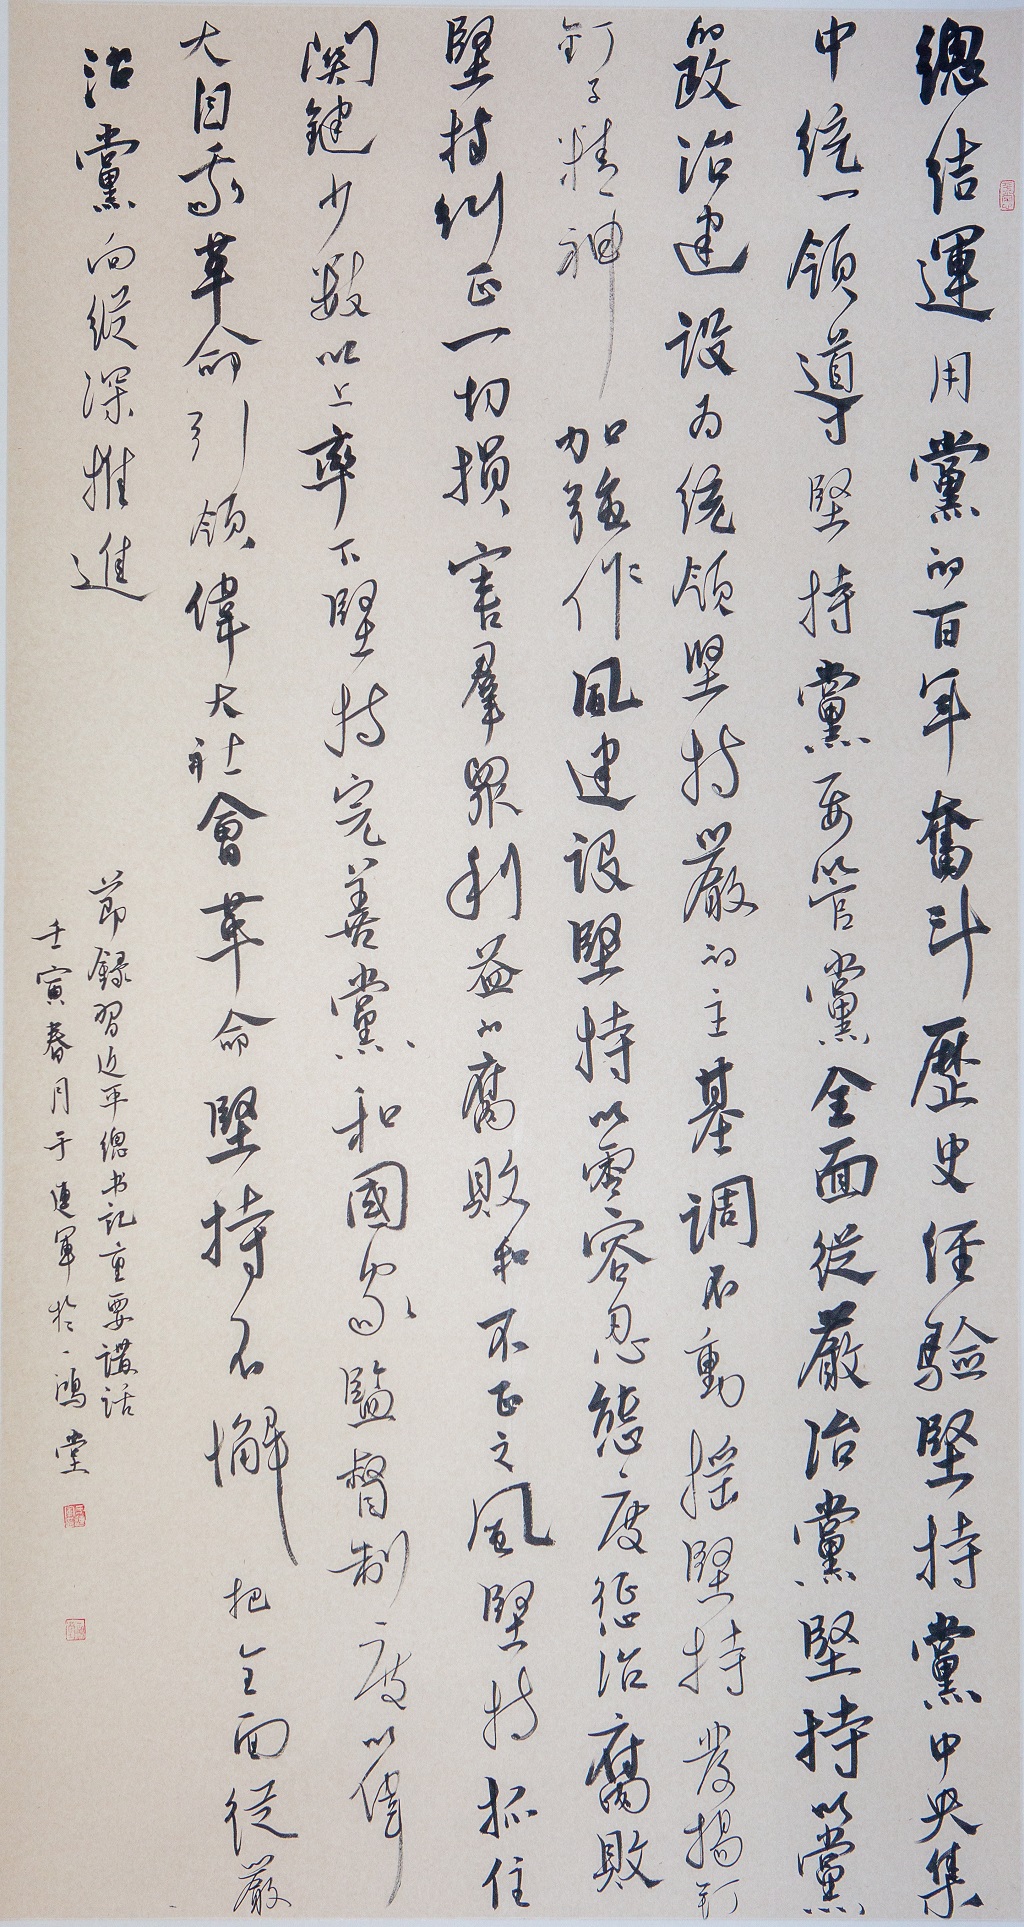 總結運用黨的百年奮斗歷史经验堅持黨中央集
中统一领導堅持黨要管黨全面從嚴治黨堅持以黨
的政治建设为统领堅持嚴的主基調不動摇堅持发揚钉
钉子精神加强作風建设堅持以零容忍態度惩治腐敗
堅持纠正一切损害羣眾利益的腐敗和不正之風堅持抓住
関鍵少數以上率下堅持完善黨和國家監督制度以偉
大自我革命引领偉大社會革命堅持不懈把全面從嚴
治黨向縱深推進
節録習近平總书記重要講話
壬寅春月于連軍於一鴻堂